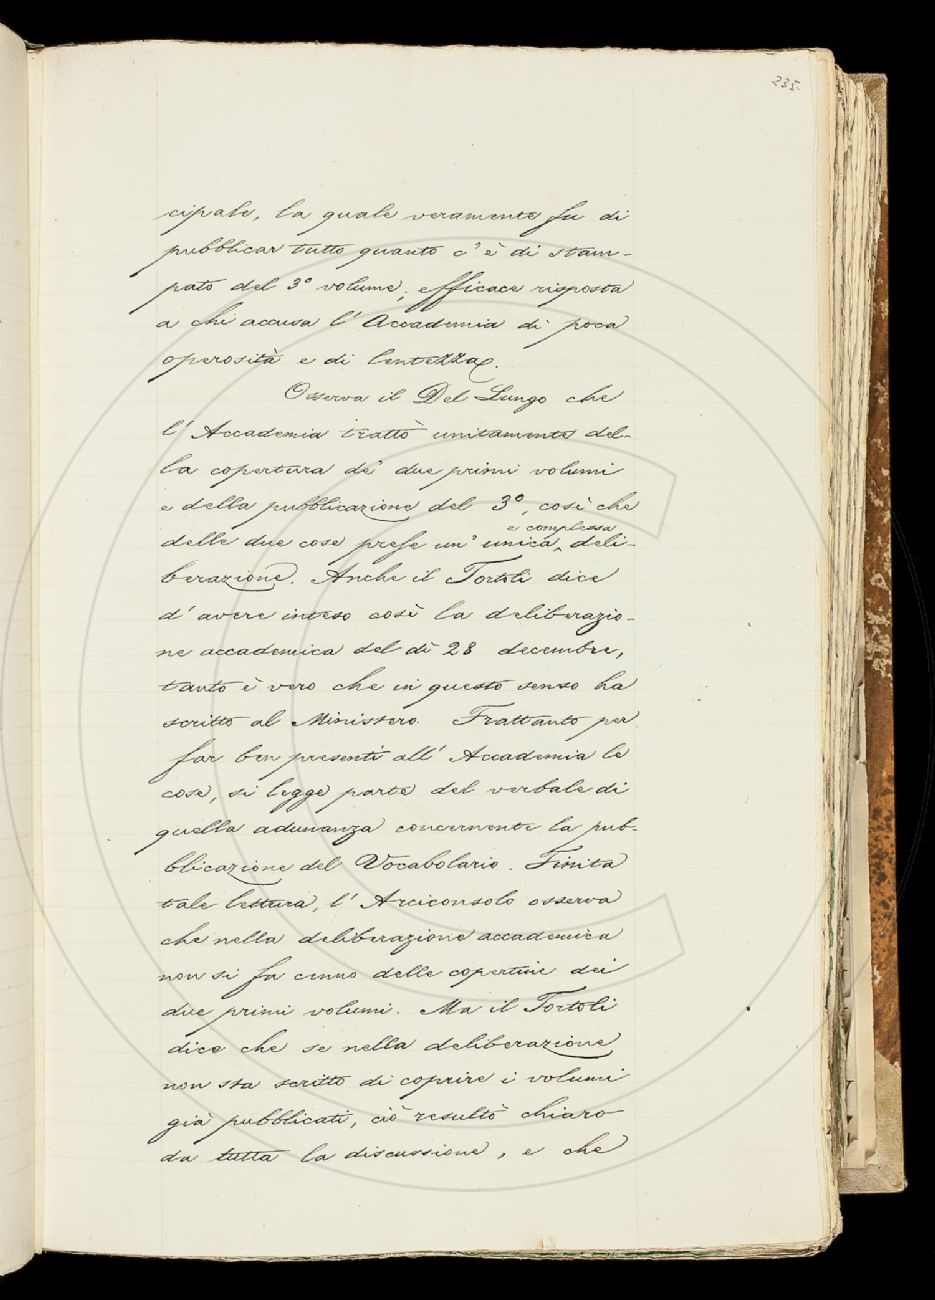 235.
cipale, la quale veramente fu di
pubblicar tutto quanto c'è di stam-
pato del 3º volume, efficace risposta
a chi accusa l'Accademia di poca
operosità e di lentezza.
Osserva il Del Lungo che
l'Accademia trattò unitamente del-
la copertura de' due primi volumi
e della pubblicazione del 3º, così che
e complessa
delle due cose prese un'unica ^ deli-
berazione. Anche il Tortoli dice
d'avere inteso così la deliberazio-
ne accademica del dì 28 decembre,
tanto è vero che in questo senso ha
scritto al Ministero. Frattanto per
far ben presenti all'Accademia le
cose, si legge parte del verbale di
quella adunanza concernente la pub-
blicazione del Vocabolario. Finita
tale lettura, l'Arciconsolo osserva
che nella deliberazione accademica
non si fa cenno delle copertine dei
due primi volumi. Ma il Tortoli
dice che se nella deliberazione
non sta scritto di coprire i volumi
già pubblicati, ciò resultò chiaro
da tutta la discussione, e che